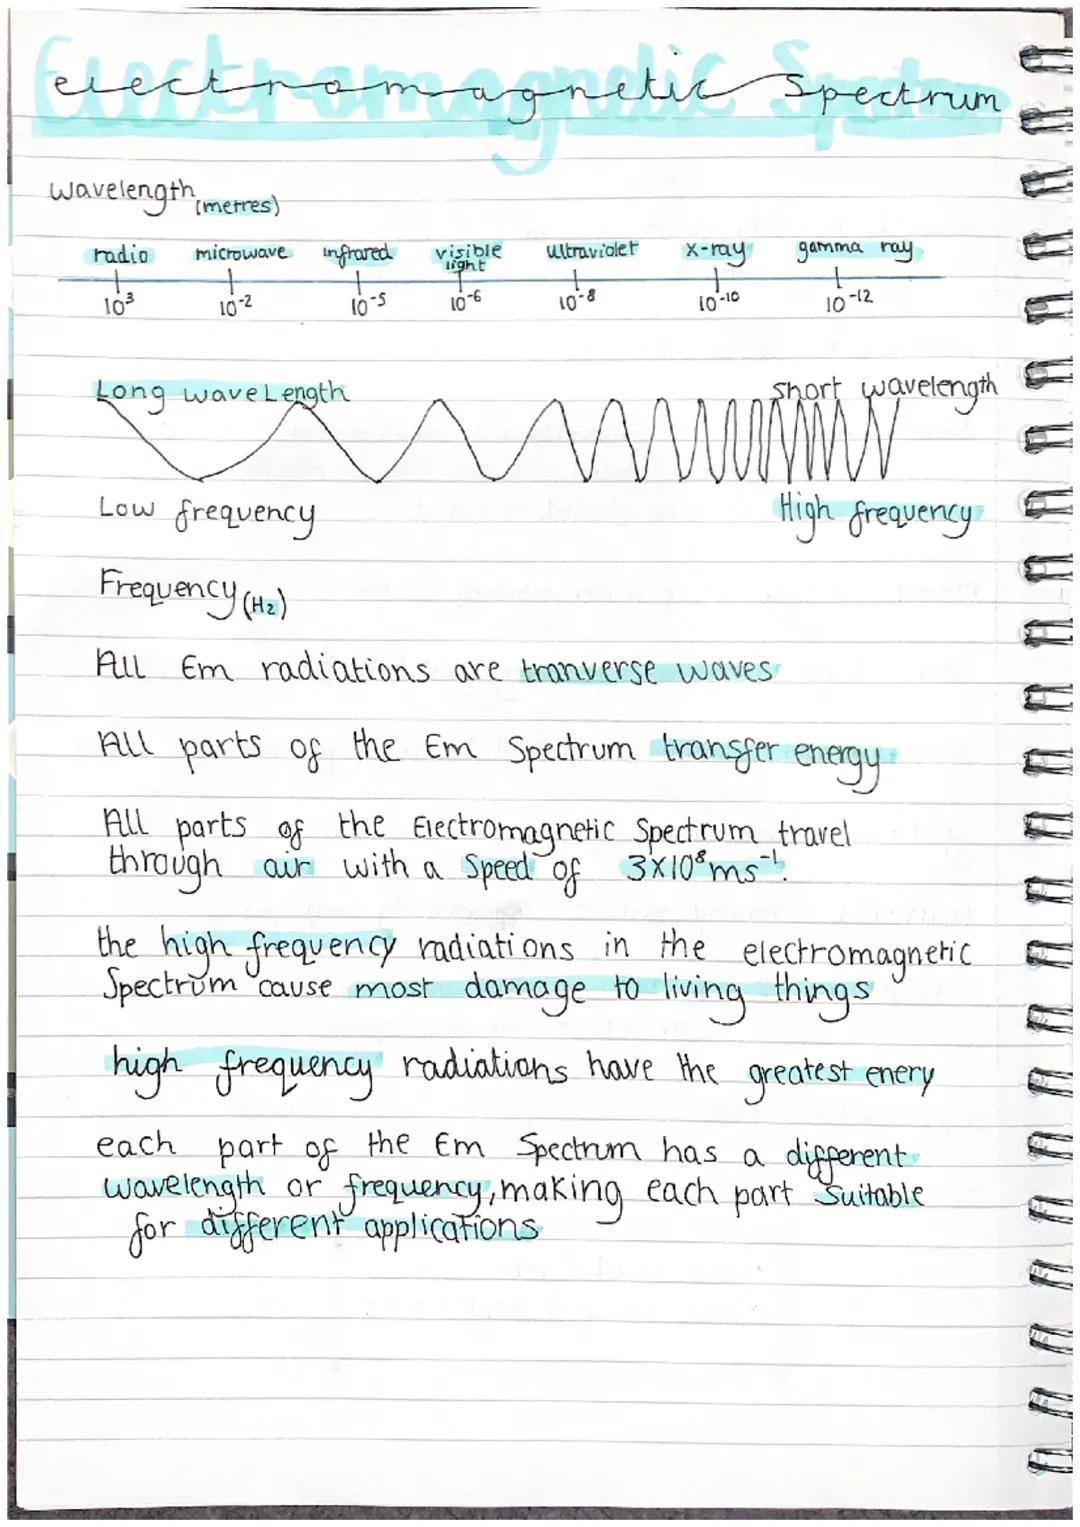 Electromagnetic Spectrum
electromagnetic Spectrum
wavelength (metres)
radio microwave infrared visible light ultraviolet x-ray gamma ray
10³ 10⁻² 10⁻⁵ 10⁻⁶ 10⁻⁸ 10⁻¹⁰ 10⁻¹²
Long waveLength short wavelength
Low frequency High frequency
Frequency (Hz)
All Em radiations are tranverse waves
All parts of the Em Spectrum transfer energy
All parts of the Electromagnetic Spectrum travel
through air with a Speed of 3X10⁸ms⁻¹.
the high frequency radiations in the electromagnetic
Spectrum cause most damage to living things
high frequency radiations have the greatest enery
each part of the Em Spectrum has a different
wavelength or frequency, making each part Suitable
for different applications